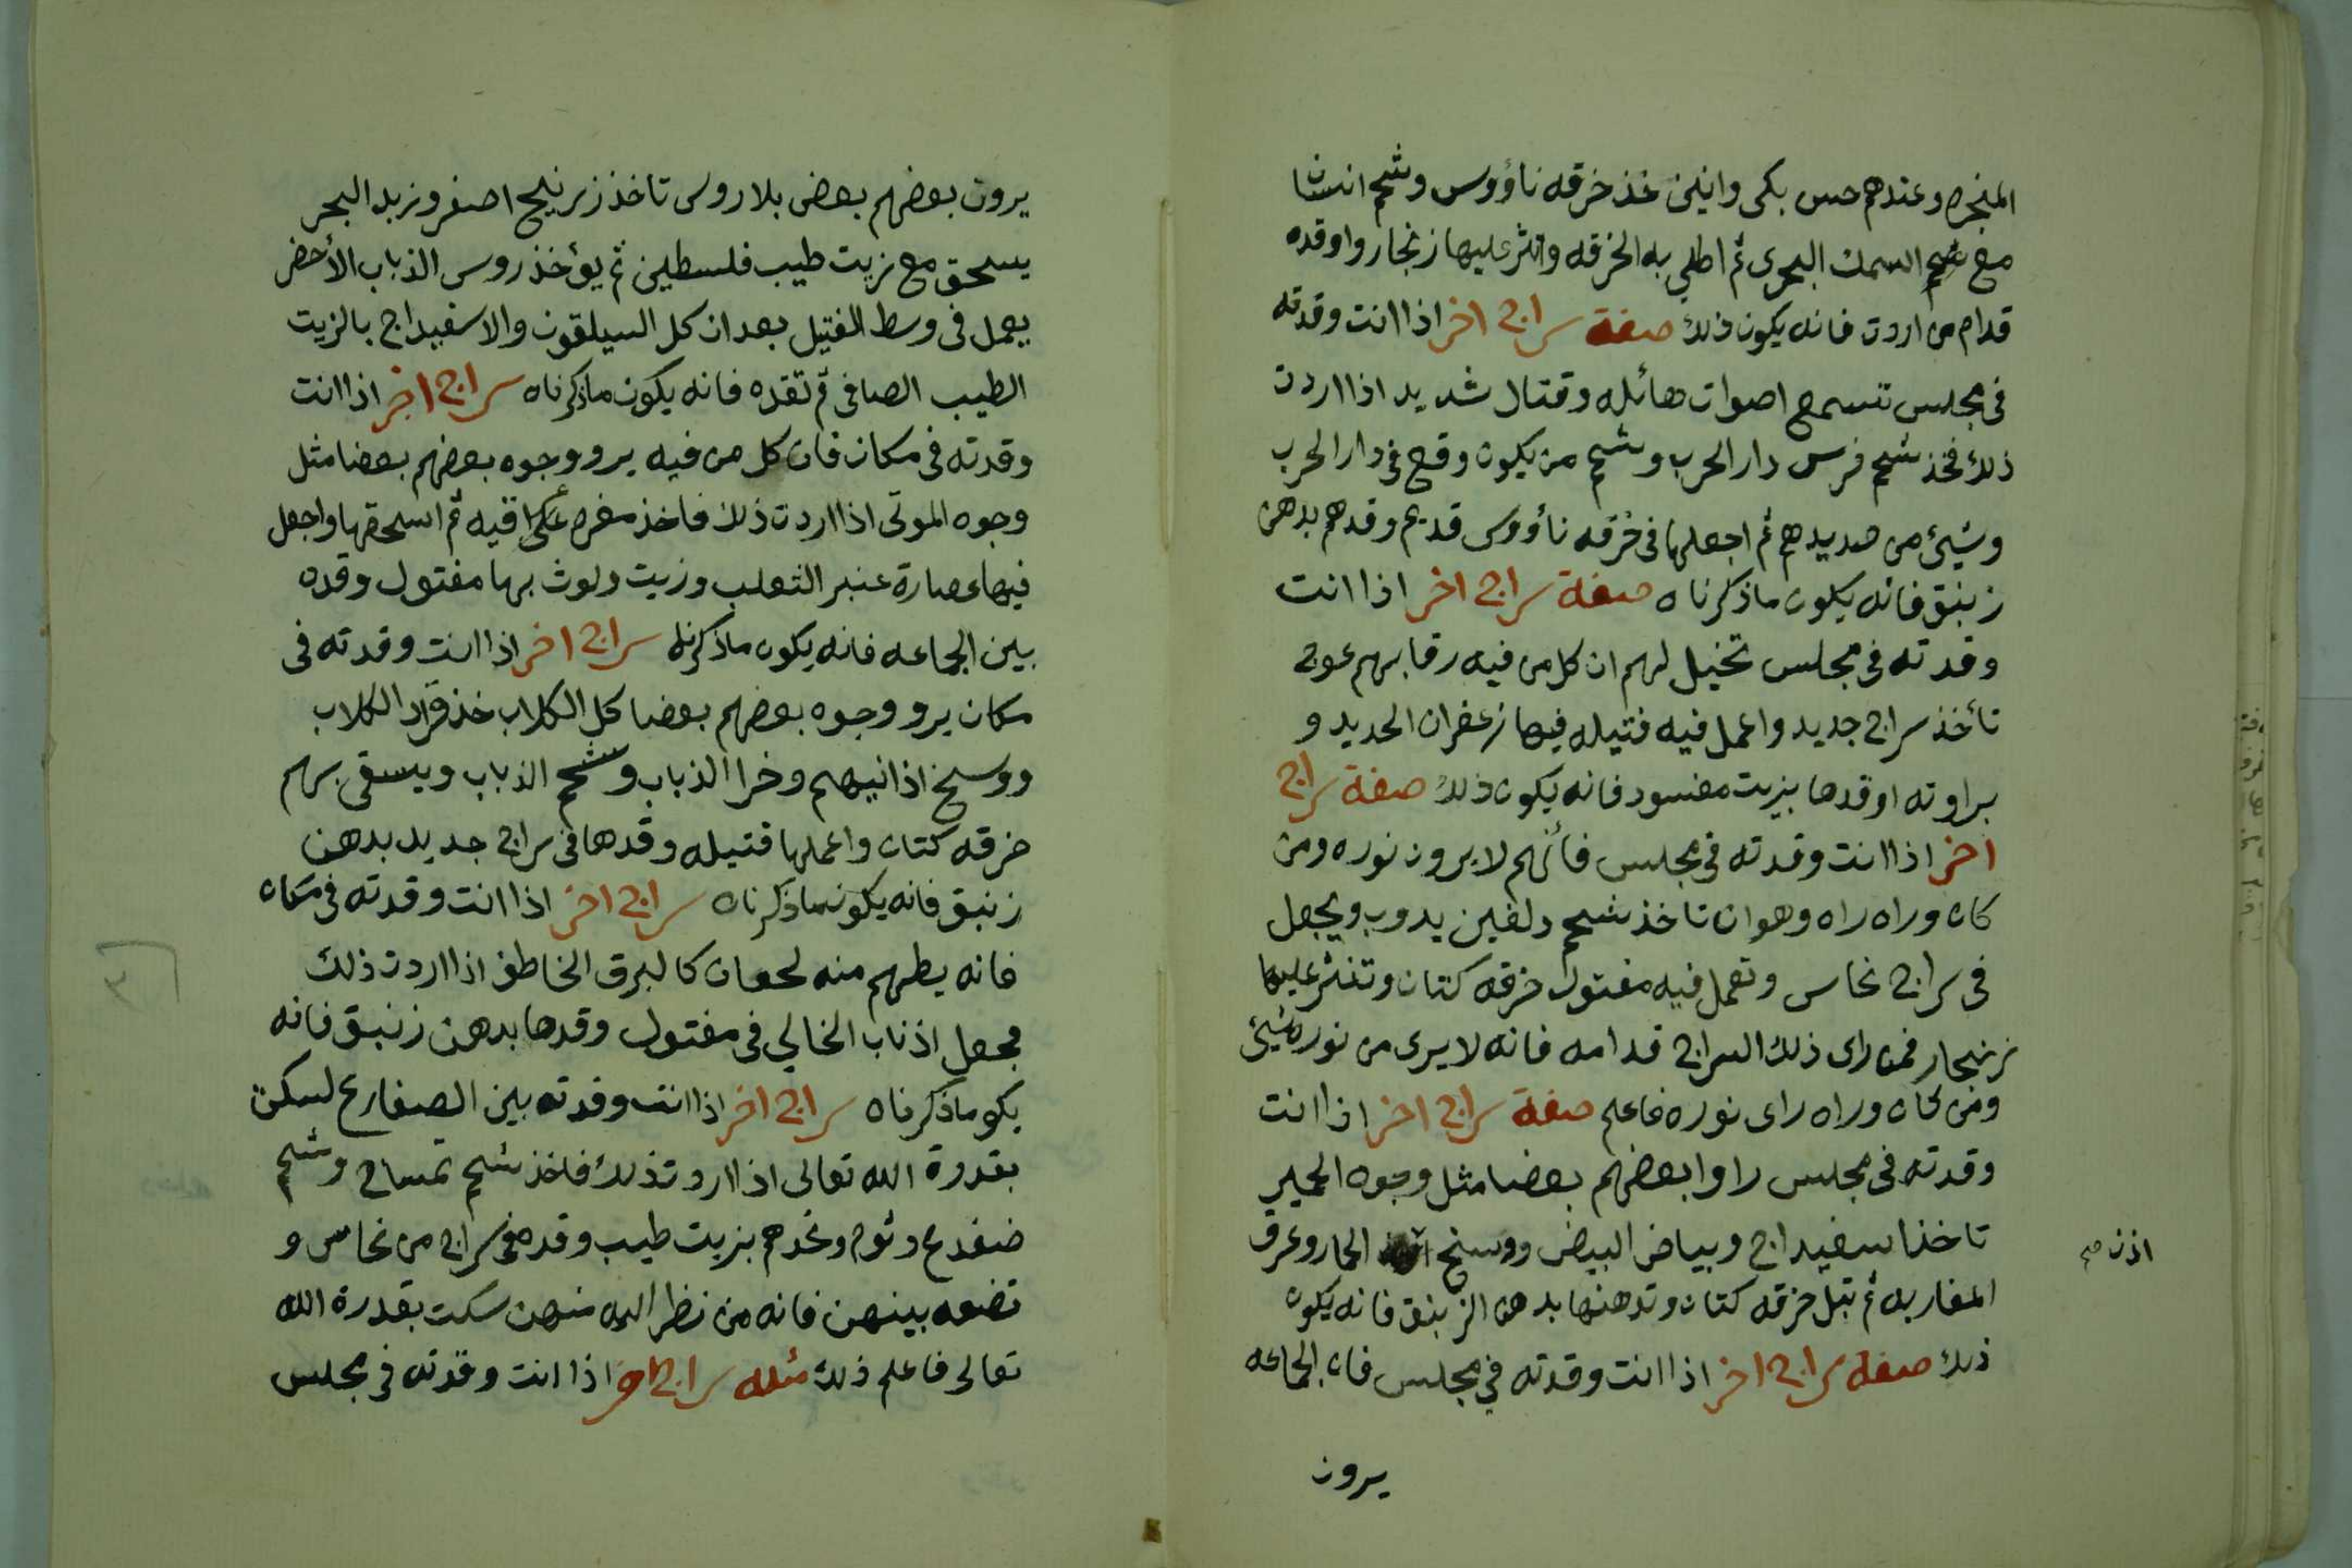 المنجره وعندهم حس بكى وانين خذ خرقه ناؤوس وشحم انسان
مع شحم السمك البحرى ثم اطلي به الخرقه وانثر عليها زنجار واوقده
قدام من اردت فانه يكون ذلك صفة سراج اخر اذا انت وقدته
فى مجلس تسمع اصوات هائله وقتال شديد اذا اردت
ذلك فخذ شحم فرس دار الحرب وشحم من يكون وقع فى دار الحرب
وشيئ من صديدهم ثم اجعلها فى خرقه ناؤوس قديم وقدهم بدهن
زنبق فانه يكون ماذكرناه صفة سراج اخر اذا انت
وقدته فى مجلس تخيل لهم ان كل من فيه رقابهم عوج
تأخذ سراج جديد واعمل فيه فتيله فيها زعفران الحديد و
براوته اوقدها بزيت مفسود فانه يكون ذلك صفة سراج
اخر اذا انت وقدته فى مجلس فأنهم لا يرون نوره ومن
كان وراه راه وهو ان تاخذ شحم دلفين يدوب ويجعل
فى سراج نحاس وتعمل فيه مفتول خرقه كتان وتنثر عليها
زنجار فمن راى ذلك السراج قدامه فانه لا يرى من نوره شيئ
ومن كان وراه راى نوره فاعلم صفة سراج اخر اذا انت
وقدته فى مجلس راوا بعضهم بعضا مثل وجوه الحمير
تاخذ اسفيداج وبياض البيض ووسخ الحمار وعرق
اذن صح
المغاربه ثم تبل خرقه كتان وتدهنها بدهن الزنبق فانه يكون
ذلك صفة سراج اخر اذا انت وقدته في مجلس فان الجماعه
يرون
يرون بعضهم بعض بلا روس تاخذ زرنيح اصفر وزبد البحر
يسحق مع زيت طيب فلسطين ثم يؤخذ روس الذباب الأخضر
يعمل فى وسط الفتيل بعد ان كل السيلقون والاسفيداج بالزيت
الطيب الصافى ثم تقده فانه يكون ماذكرناه سراج اخر اذا انت
وقدته فى مكان فان كل من فيه يرو وجوه بعضهم بعضا مثل
وجوه الموتى اذا اردت ذلك فاخذ مغره عراقيه ثم اسحقها واجعل
فيها عصارة عنبر الثعلب وزيت ولوث بها مفتول وقده
بين الجماعه فانه يكون ماذكرنه سراج اخر اذا انت وقدته فى
مكان يرو وجوه بعضهم بعضا كل الكلاب خذ قراد الكلاب
ووسخ اذانيهم وخرا الذباب وشحم الذباب ويسقى بهم
خرقه كتان واعملها فتيله وقدها فى سراج جديد بدهن
زنبق فانه يكون ماذكرناه سراج اخر اذا انت وقدته فى مكان
فانه يطهم منه لحعان كالبرق الخاطف اذا اردت ذلك
فجعل اذناب الخالي فى مفتول وقدها بدهن زنبق فانه
يكو ماذكرناه سراج اخر اذا انت وقدته بين الصفارع لسكن
بقدرة الله تعالى اذا اروت ذلك فاخذ شحم تمساح وشحم
ضفدع وثوم وخدهم بزيت طيب وقده فى سراج من نحاس و
تضعه بينهن فانه من نظر اليه منهن سكت بقدرة الله
تعالى فاعلم ذلك مثله سراج اخر اذا انت وقدته فى مجلس